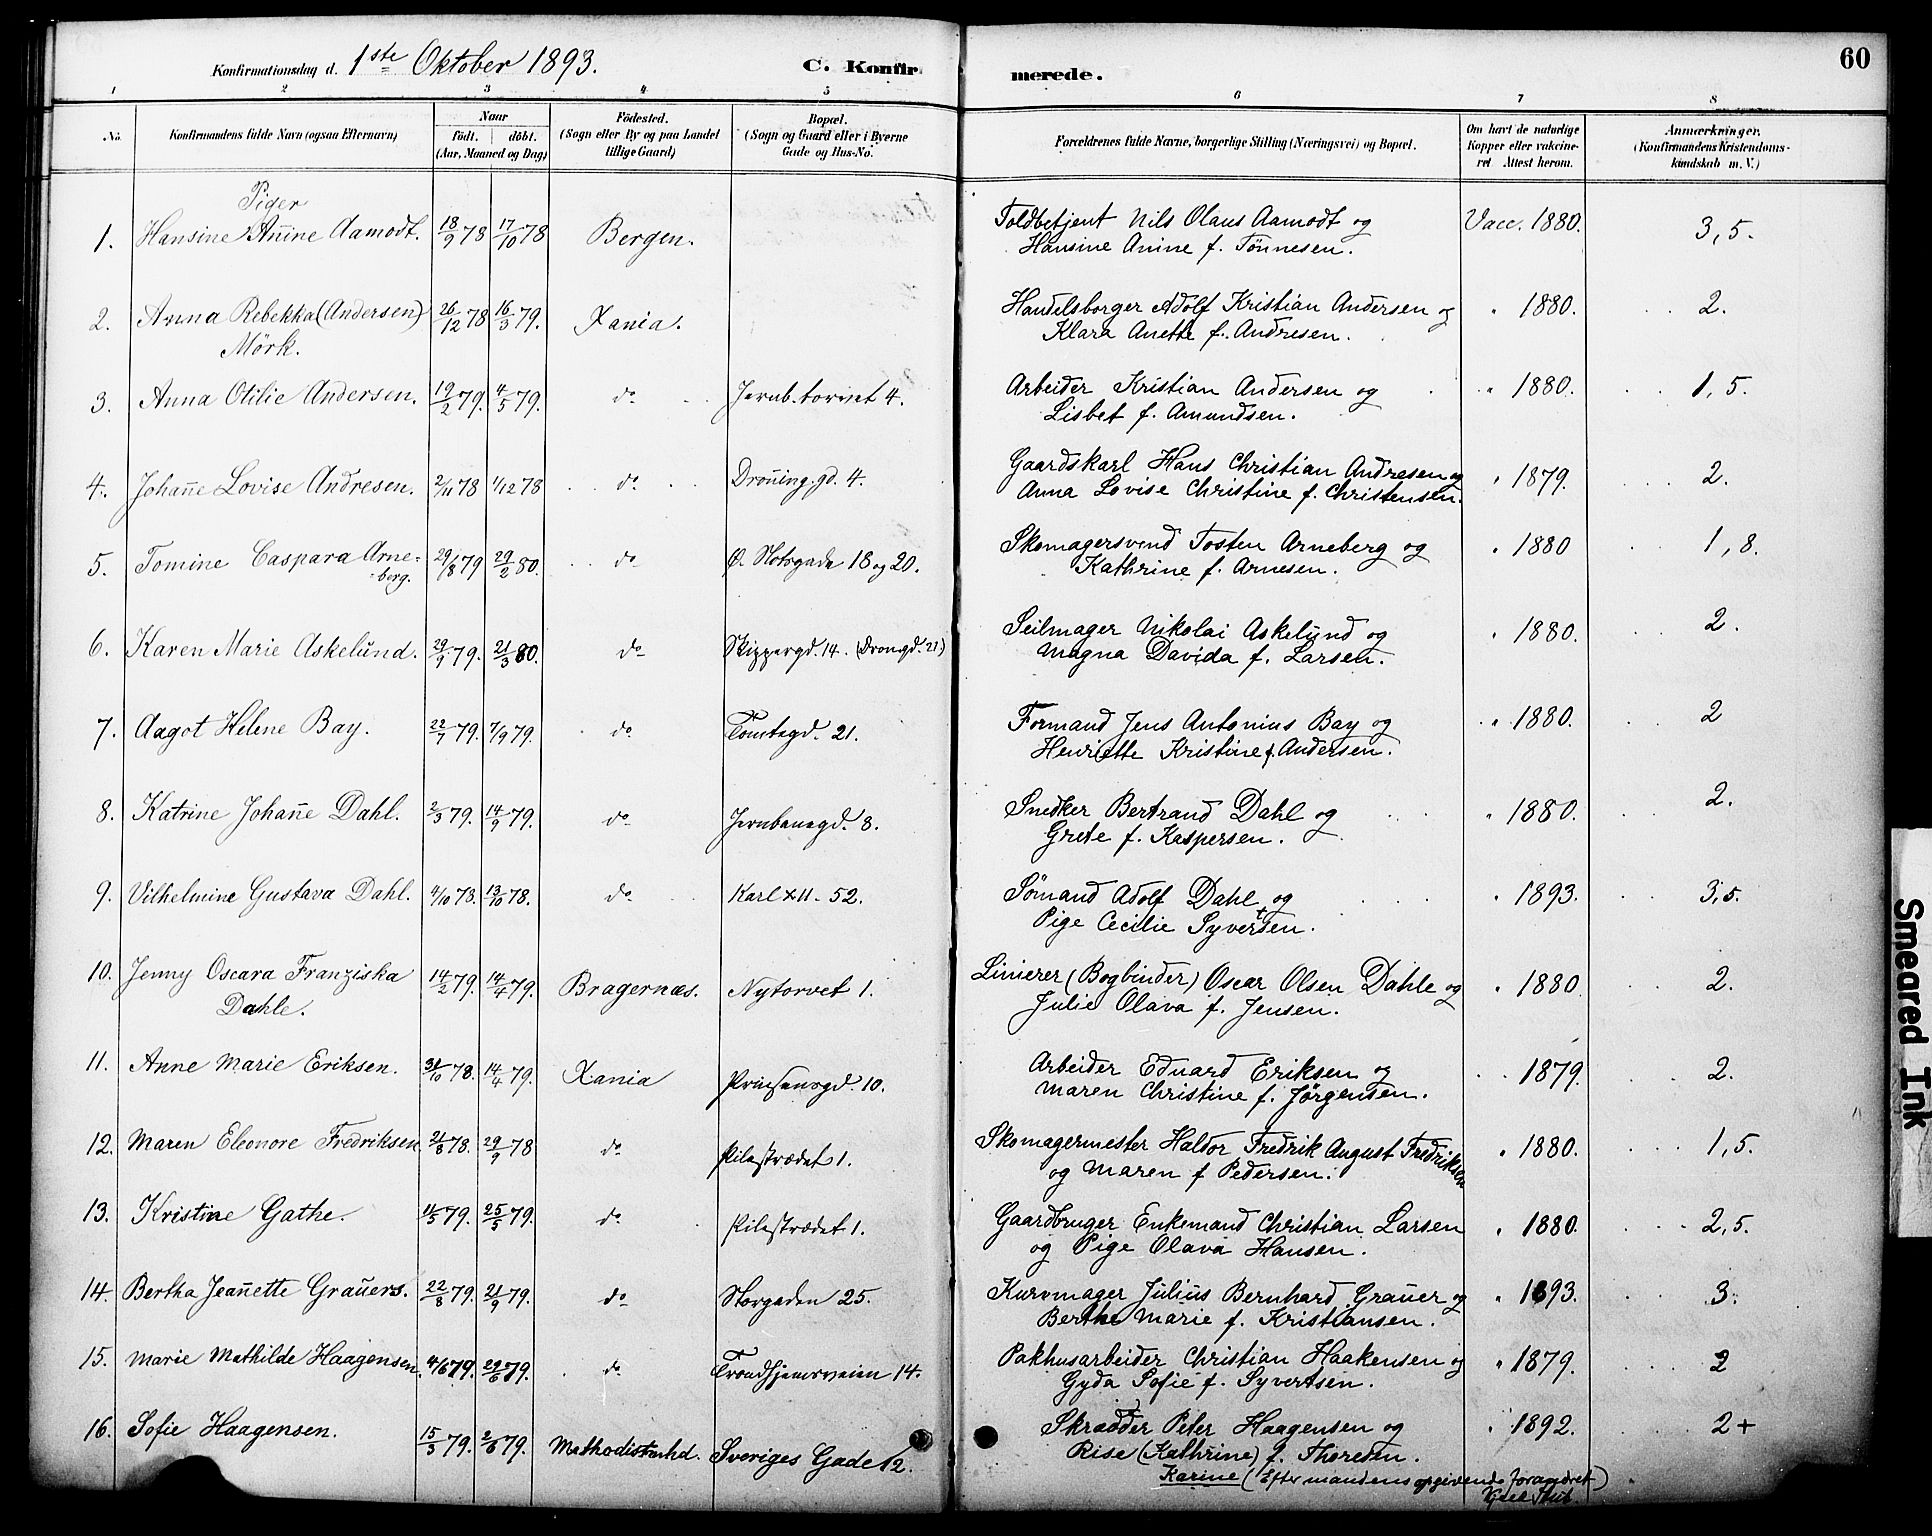 60
Konfirmationsdag d. 1ste Oktober 1893. C. Konfir merede.
1 2 3 4 5 6 7 8
No. Konfirmandens fulde Navn (ogsaa Efternavn) Naar født. døbt. (Aar, Maaned og Dag) Fødested. (Sogn eller By og paa Landet tillige Gaard) Bopæl. (Sogn og Gaard eller i Byerne Gade og Hus-No. Forældrenes fulde Navne, borgerlige Stilling (Næringsvei) og Bopæl. Om havt de naturlige Kopper eller vakcineret. Attest herom. Anmærkninger. (Konfirmandens Kristendomskundskab m. V.)
Piger
1. Hansine Anine Aamodt. 18/9 78 17/10 78 Bergen. Toldbetjent Nils Olaus Aamodt og Vacc. 1880. 3,5.
Hansine Anine f. Tönnesen.
2. Anna Rebekka (Andersen) 26/12 78 16/3 79. Xania. Handelsborger Adolf Kristian Andersen og " 1880. 2.
Mörk. Klara Anette f. Andresen.
3. Anna Otilie Andersen. 19/2 79. 4/5 79. do Jernb.torvet 4. Arbeider Kristian Andersen og " 1880. 1,5.
Lisbet f. Amundsen.
4. Johanne Lovise Andresen. 2/11 78 1/12 78 do Dronning.gd. 4. Gaardskarl Hans Christian Andresen og " 1879. 2.
Anna Lovise Christine f. Christensen.
5. Tomine Caspara Arne- 29/8 79 29/2 80. do Ø. Slotsgade 18 og 20. Skomagersvend Tosten Arneberg og " 1880 1,8.
-berg. Kathrine f. Arnesen.
6. Karen Marie Askelund. 29/9 79. 21/3 80. do Skippergd. 14. (Drongd. 21) Seilmager Nikolai Askelund og " 1880. 2.
Magna Davida f. Larsen.
7. Aagot Helene Bay. 22/7 79. 7/9 79. do Tomtegd. 21. Formand Jens Antonius Bay og " 1880. 2
Henriette Kristine f. Andersen.
8. Katrine Johanne Dahl. 2/3 79. 14/9 79. do Jernbanegd. 8. Snedker Bertrand Dahl og " 1880. 2.
Grete f. Kaspersen.
9. Vilhelmine Gustava Dahl. 4/10 78. 13/10 78. do Karl XII. 52. Sömand Adolf Dahl og " 1893. 3,5.
Pige Cecilie Syversen.
10. Jenny Oscara Franziska 14/2 79. 14/4 79. Bragernæs. Nytorvet 1. Linierer (Bogbinder) Oscar Olsen Dahle og " 1880. 2.
Dahle. Julie Olava f. Jensen.
11. Anne Marie Eriksen. 31/10 78. 14/4 79. Xania Prinsensgd. 10. Arbeider Eduard Eriksen og 1879. 2.
Maren Christine f. Jörgensen.
12. Maren Eleonore Fredriksen 21/8 78. 29/9 78 do Pilestrædet 1. Skomagermester Haldor Fredrik August Fredriksen " 1880. 1,5.
og Maren f Pedersen.
13. Kristine Gathe. 11/5 79. 25/5 79. do Pilestrædet 1. Gaardbruger Enkemand Christian Larsen " 1880. 2,5.
og Pige Olava Hansen.
14. Bertha Jeanette Grauers. 22/8 79. 21/9 79. do Storgaden 25. Kurvmager Julius Bernhard Grauer og " 1893. 3.
Berthe Marie f. Kristiansen.
15. Marie Mathilde Haagensen. 4/6 79. 29/6 79. do Trondhjemsveien 14. Pakhusarbeider Christian Haakensen og " 1879. 2
Gyda Sofie f. Syvertsen.
16. Sofie Haagensen. 15/3 79. 2/6 79. Methodistmhd. Sveriges Gade 12. Skrædder Peter Haagensen og " 1892. 2+
Rise (Kathrine) f. Thoresen.
Karine (Efter mandens opgivende forandret)
Smeared Ink